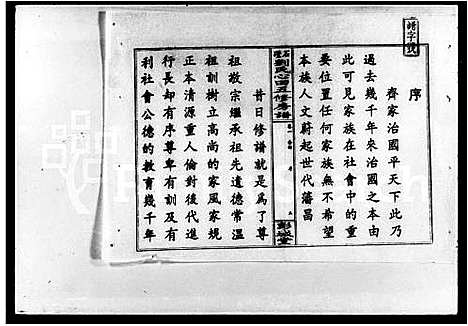 序
齊家治國平天下此乃
過去幾千年來治國之本由
此可見家族在社會中的重
要位置任何家族無不希望
本族人文蔚起世代藩昌
劉氏心田五修房譜
彭城堂
昔日修譜就是爲了尊
祖敬宗繼承祖先遺德常溫
祖訓樹立高尚的家風家規
正本清源重人倫對後代進
行長却有序尊卑有訓及有
利社會公德的教育幾千年